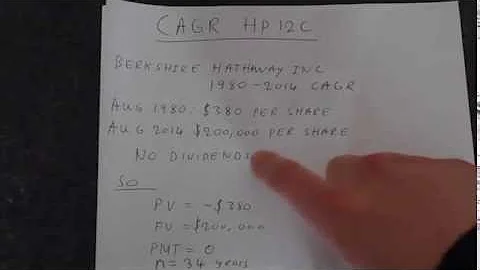 CAGR HP 12C
BERKSHIRE HATHAWAY INC
1980-2014 CAGR
AUG 1980. $380 PER SHARE
AUG 2014 $200,000 PER SHARE
NO DIVIDENDS
SO
PV = -$380
FV = $200,000
PMT = 0
n = 34 years